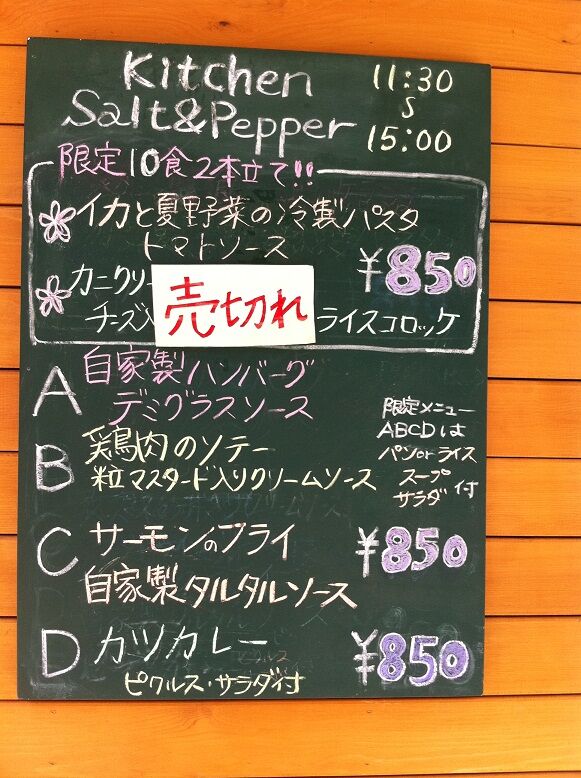 Kitchen
Salt&Pepper
11:30
〜
15:00
限定10食2本立て!!
イカと夏野菜の冷製パスタ
トマトソース
¥850
カニクリ
チーズ入
売切れ
ライスコロッケ
A 自家製ハンバーグ
デミグラスソース
B 鶏肉のソテー
粒マスタード入りクリームソース
限定メニュー
ABCDは
パンorライス
スープ
サラダ付
C サーモンのフライ
自家製タルタルソース
¥850
D カツカレー
ピクルス・サラダ付
¥850